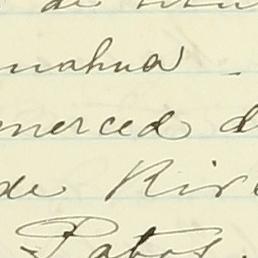 de
nahua -
merced d
de Riv
Patos